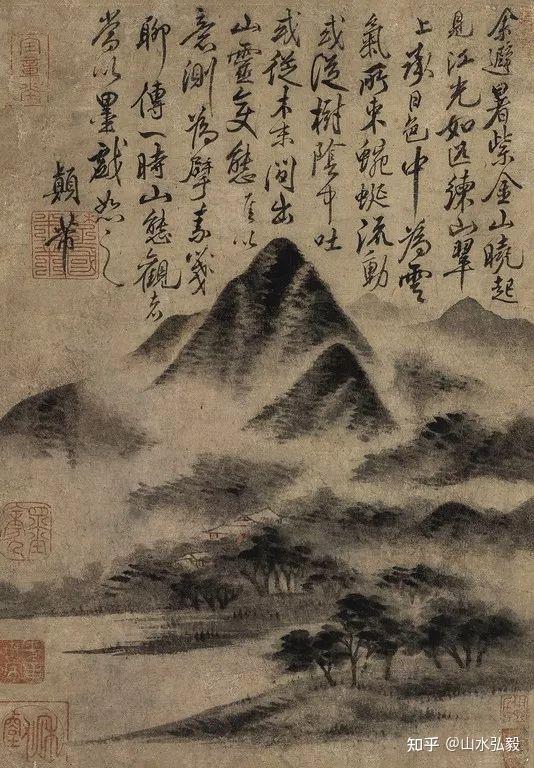 余避暑紫金山曉起
見江光如匹練山翠
上日色中為雲
氣所束蜿蜒流動
或從樹陰中吐
或從木末間出
山靈變態以
意測為擘素箋
聊傳一時山態觀者
當以墨戲恕之
顛芾
知乎 @山水弘毅